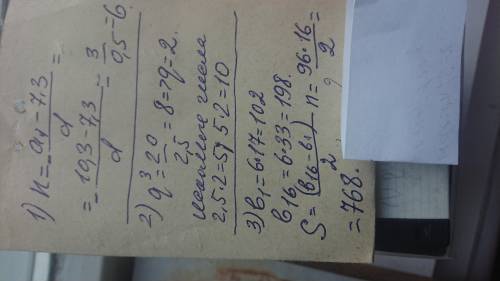 1) n = a₁ - 7,3 / d =
= - 10,3 - 7,3 / d = 3 / 0,5 = 6
2) q³ = 20 / 2,5 = 8 => q = 2.
искомые числа
2,5·2=5; 5·2=10
3) b₁ = 6·17 = 102
b₁₆ = 6·33 = 198.
S = (b₁₆ - b₁) / 2 n = 96·16 / 2 =
= 768.